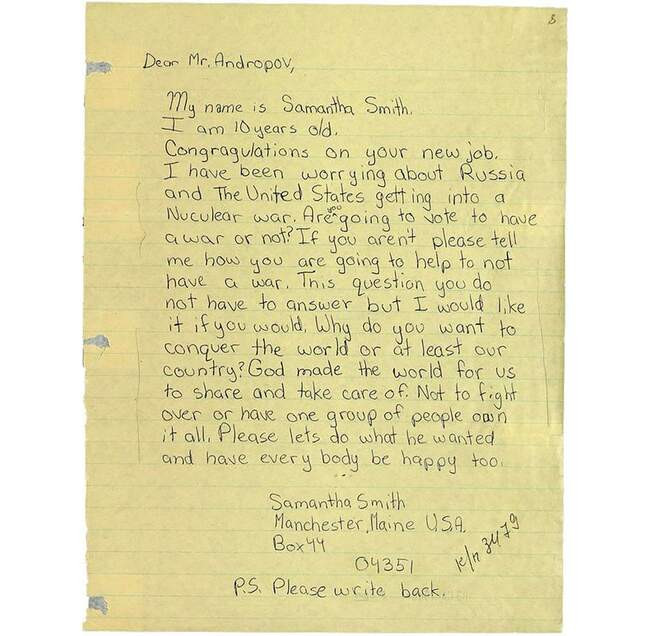 8
Dear Mr. Andropov,
My name is Samantha Smith.
I am 10 years old.
Congragulations on your new job.
I have been worrying about Russia
and The United States getting into a
Nuculear war. Are you going to vote to have
a war or not? If you aren't please tell
me how you are going to help to not
have a war. This question you do
not have to answer but I would like
it if you would. Why do you want to
conquer the world or at least our
country? God made the world for us
to share and take care of. Not to fight
over or have one group of people own
it all. Please lets do what he wanted
and have every body be happy too.
Samantha Smith
Manchester, Maine U.S.A.
Box 44
04351
к/п 3479
P.S. Please write back.